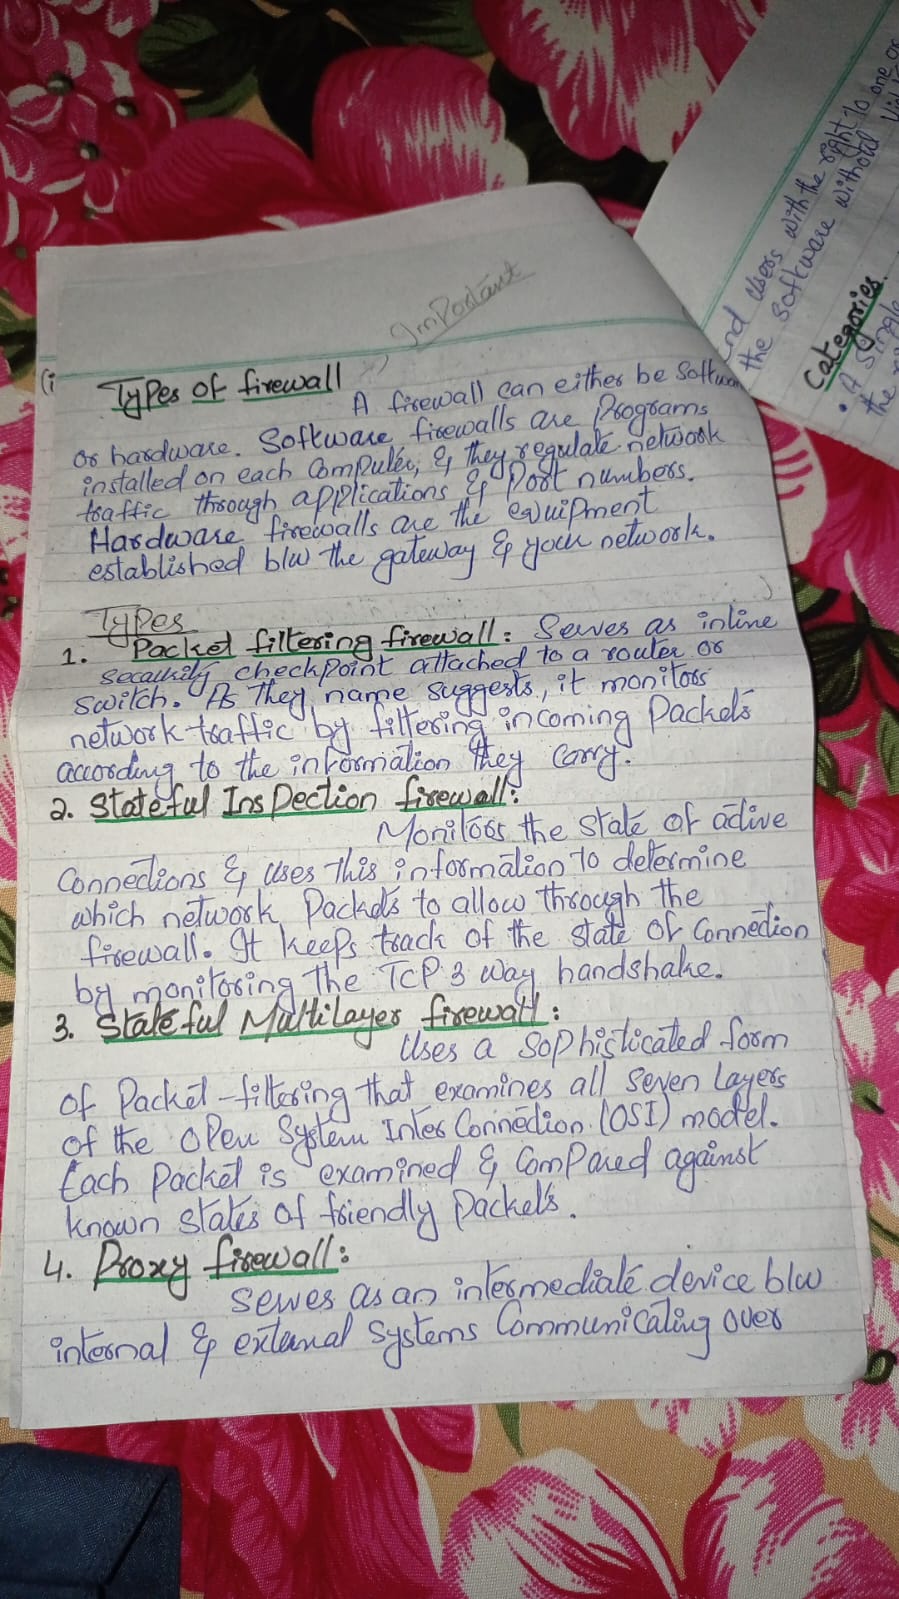 Important
(i
Types of firewall
A firewall can either be Software
or hardware. Software firewalls are Programs
installed on each Computer, & they regulate network
traffic through applications & Port numbers.
Hardware firewalls are the equipment
established b/w the gateway & your network.
Types
1. Packet filtering firewall: Serves as inline
security checkpoint attached to a router or
switch. As they name suggests, it monitors
network traffic by filtering incoming Packets
according to the information they carry.
2. Stateful Inspection firewall:
Monitors the state of active
Connections & uses this information to determine
which network Packets to allow through the
firewall. It keeps track of the state of Connection
by monitoring the TCP 3 way handshake.
3. Stateful Multilayer firewall:
Uses a sophisticated form
of Packet-filtering that examines all seven layers
of the open System Inter Connection (OSI) model.
Each packet is examined & Compared against
known states of friendly packets.
4. Proxy firewall:
Serves as an intermediate device b/w
internal & external systems Communicating over
end users with the right to one or
the software without
Categories.
• A single
the